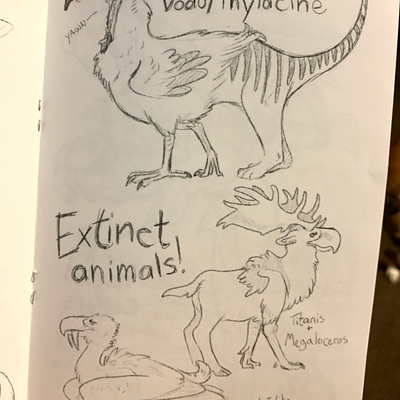 Dodo/Thylacine
Extinct
animals!
Titanis
+
Megaloceros